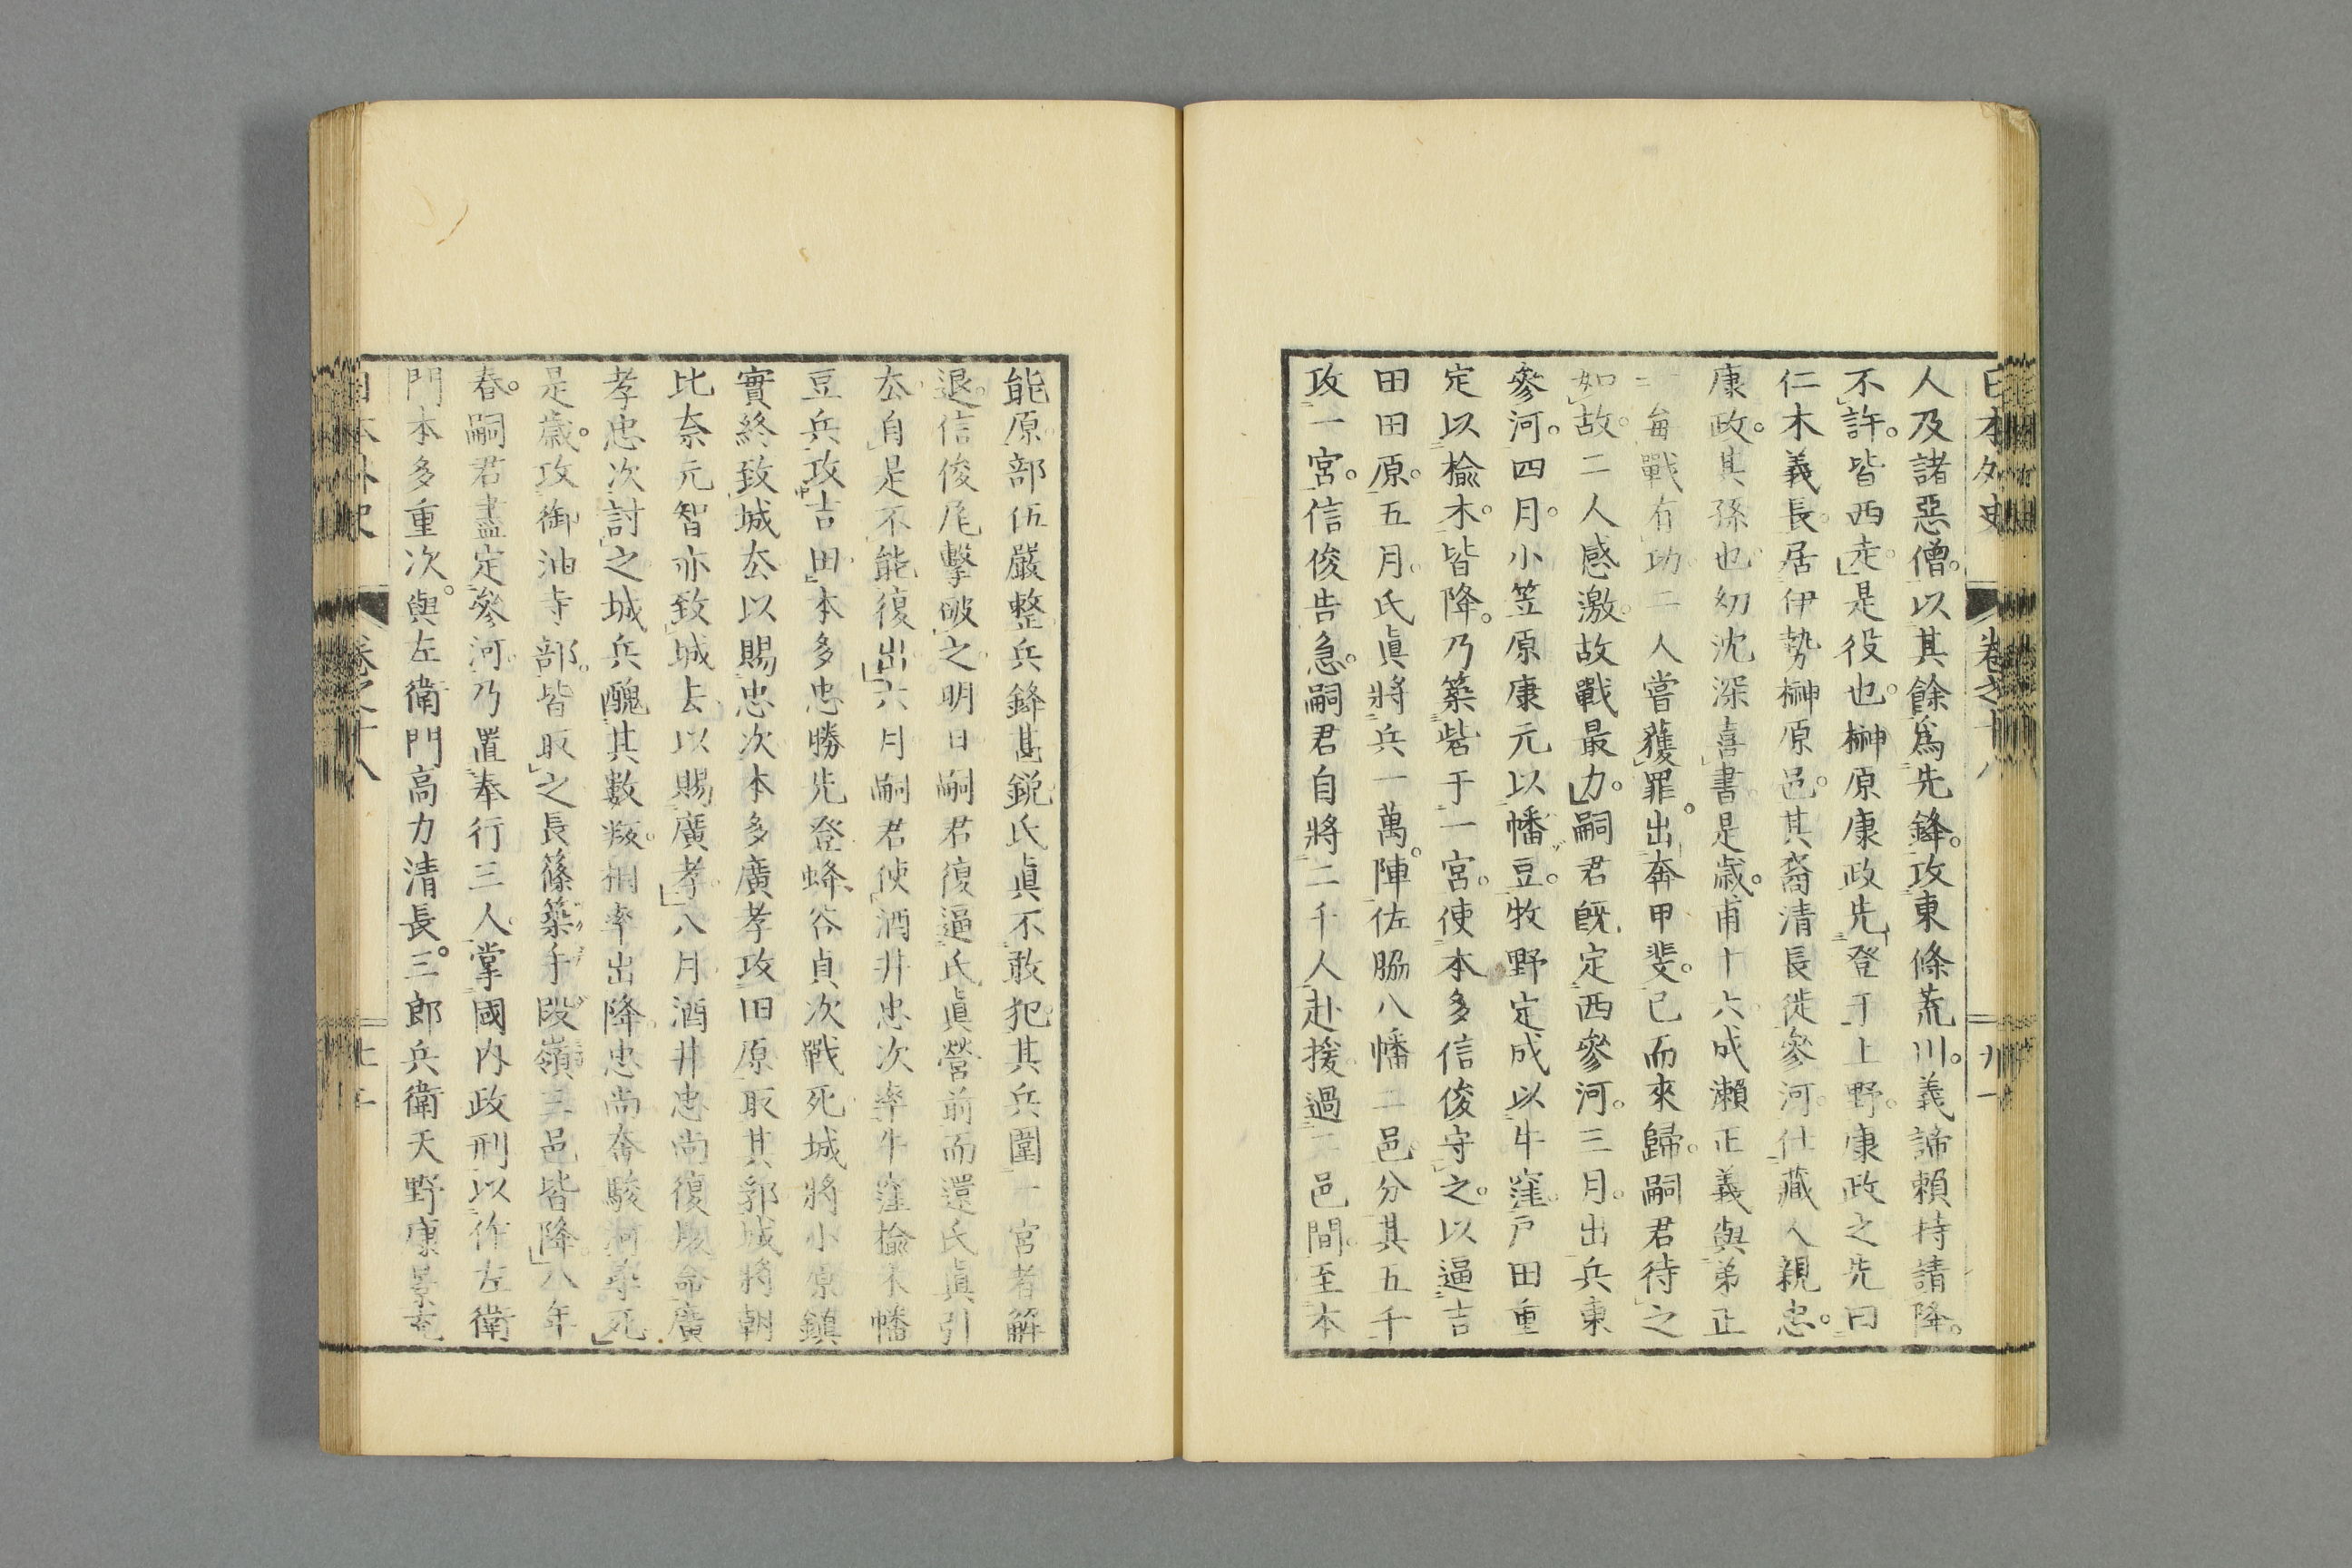 日本外史
卷之十八
人及諸惡僧。以其餘爲先鋒。攻東條荒川。義諦賴持請降。
不許。皆西走。是役也。榊原康政先登于上野。康政之先曰
仁木義長。居伊勢榊原邑。其裔清長徙參河。仕藏人親忠。
康政。其孫也。幼沈深喜書。是歲。甫十六。成瀨正義與弟正
一每戰有功。二人嘗獲罪。出奔甲斐。已而來歸。嗣君待之
如故。二人感激。故戰最力。嗣君既定西參河。三月。出兵東
參河。四月。小笠原康元以幡豆。牧野定成以牛窪。戸田重
定以楡木。皆降。乃築砦于一宮。使本多信俊守之。以逼吉
田田原。五月。氏眞將兵一萬。陣佐脇八幡二邑。分其五千
攻一宮。信俊告急。嗣君自將二千人赴援。過二邑間。至本
能原。部伍嚴整。兵鋒甚鋭。氏眞不敢犯。其兵圍一宮者解
退。信俊尾擊破之。明日嗣君復逼氏眞營前而還。氏眞引
去。自是不能復出。六月。嗣君使酒井忠次率牛窪楡木幡
豆兵攻吉田。本多忠勝先登。蜂谷貞次戰死。城將小原鎮
實終致城去。以賜忠次。本多廣孝攻田原取其郛。城將朝
比奈元智亦致城去。以賜廣孝。八月。酒井忠尚復叛。命廣
孝忠次討之。城兵醜其數叛。相率出降。忠尚奔駿河。尋死。
是歲。攻御油寺部。皆取之。長篠築手段嶺三邑皆降。八年
春。嗣君盡定參河。乃置奉行三人。掌國內政刑。以作左衛
門本多重次。與左衛門高力清長。三郎兵衛天野康景充
日本外史
卷之十八